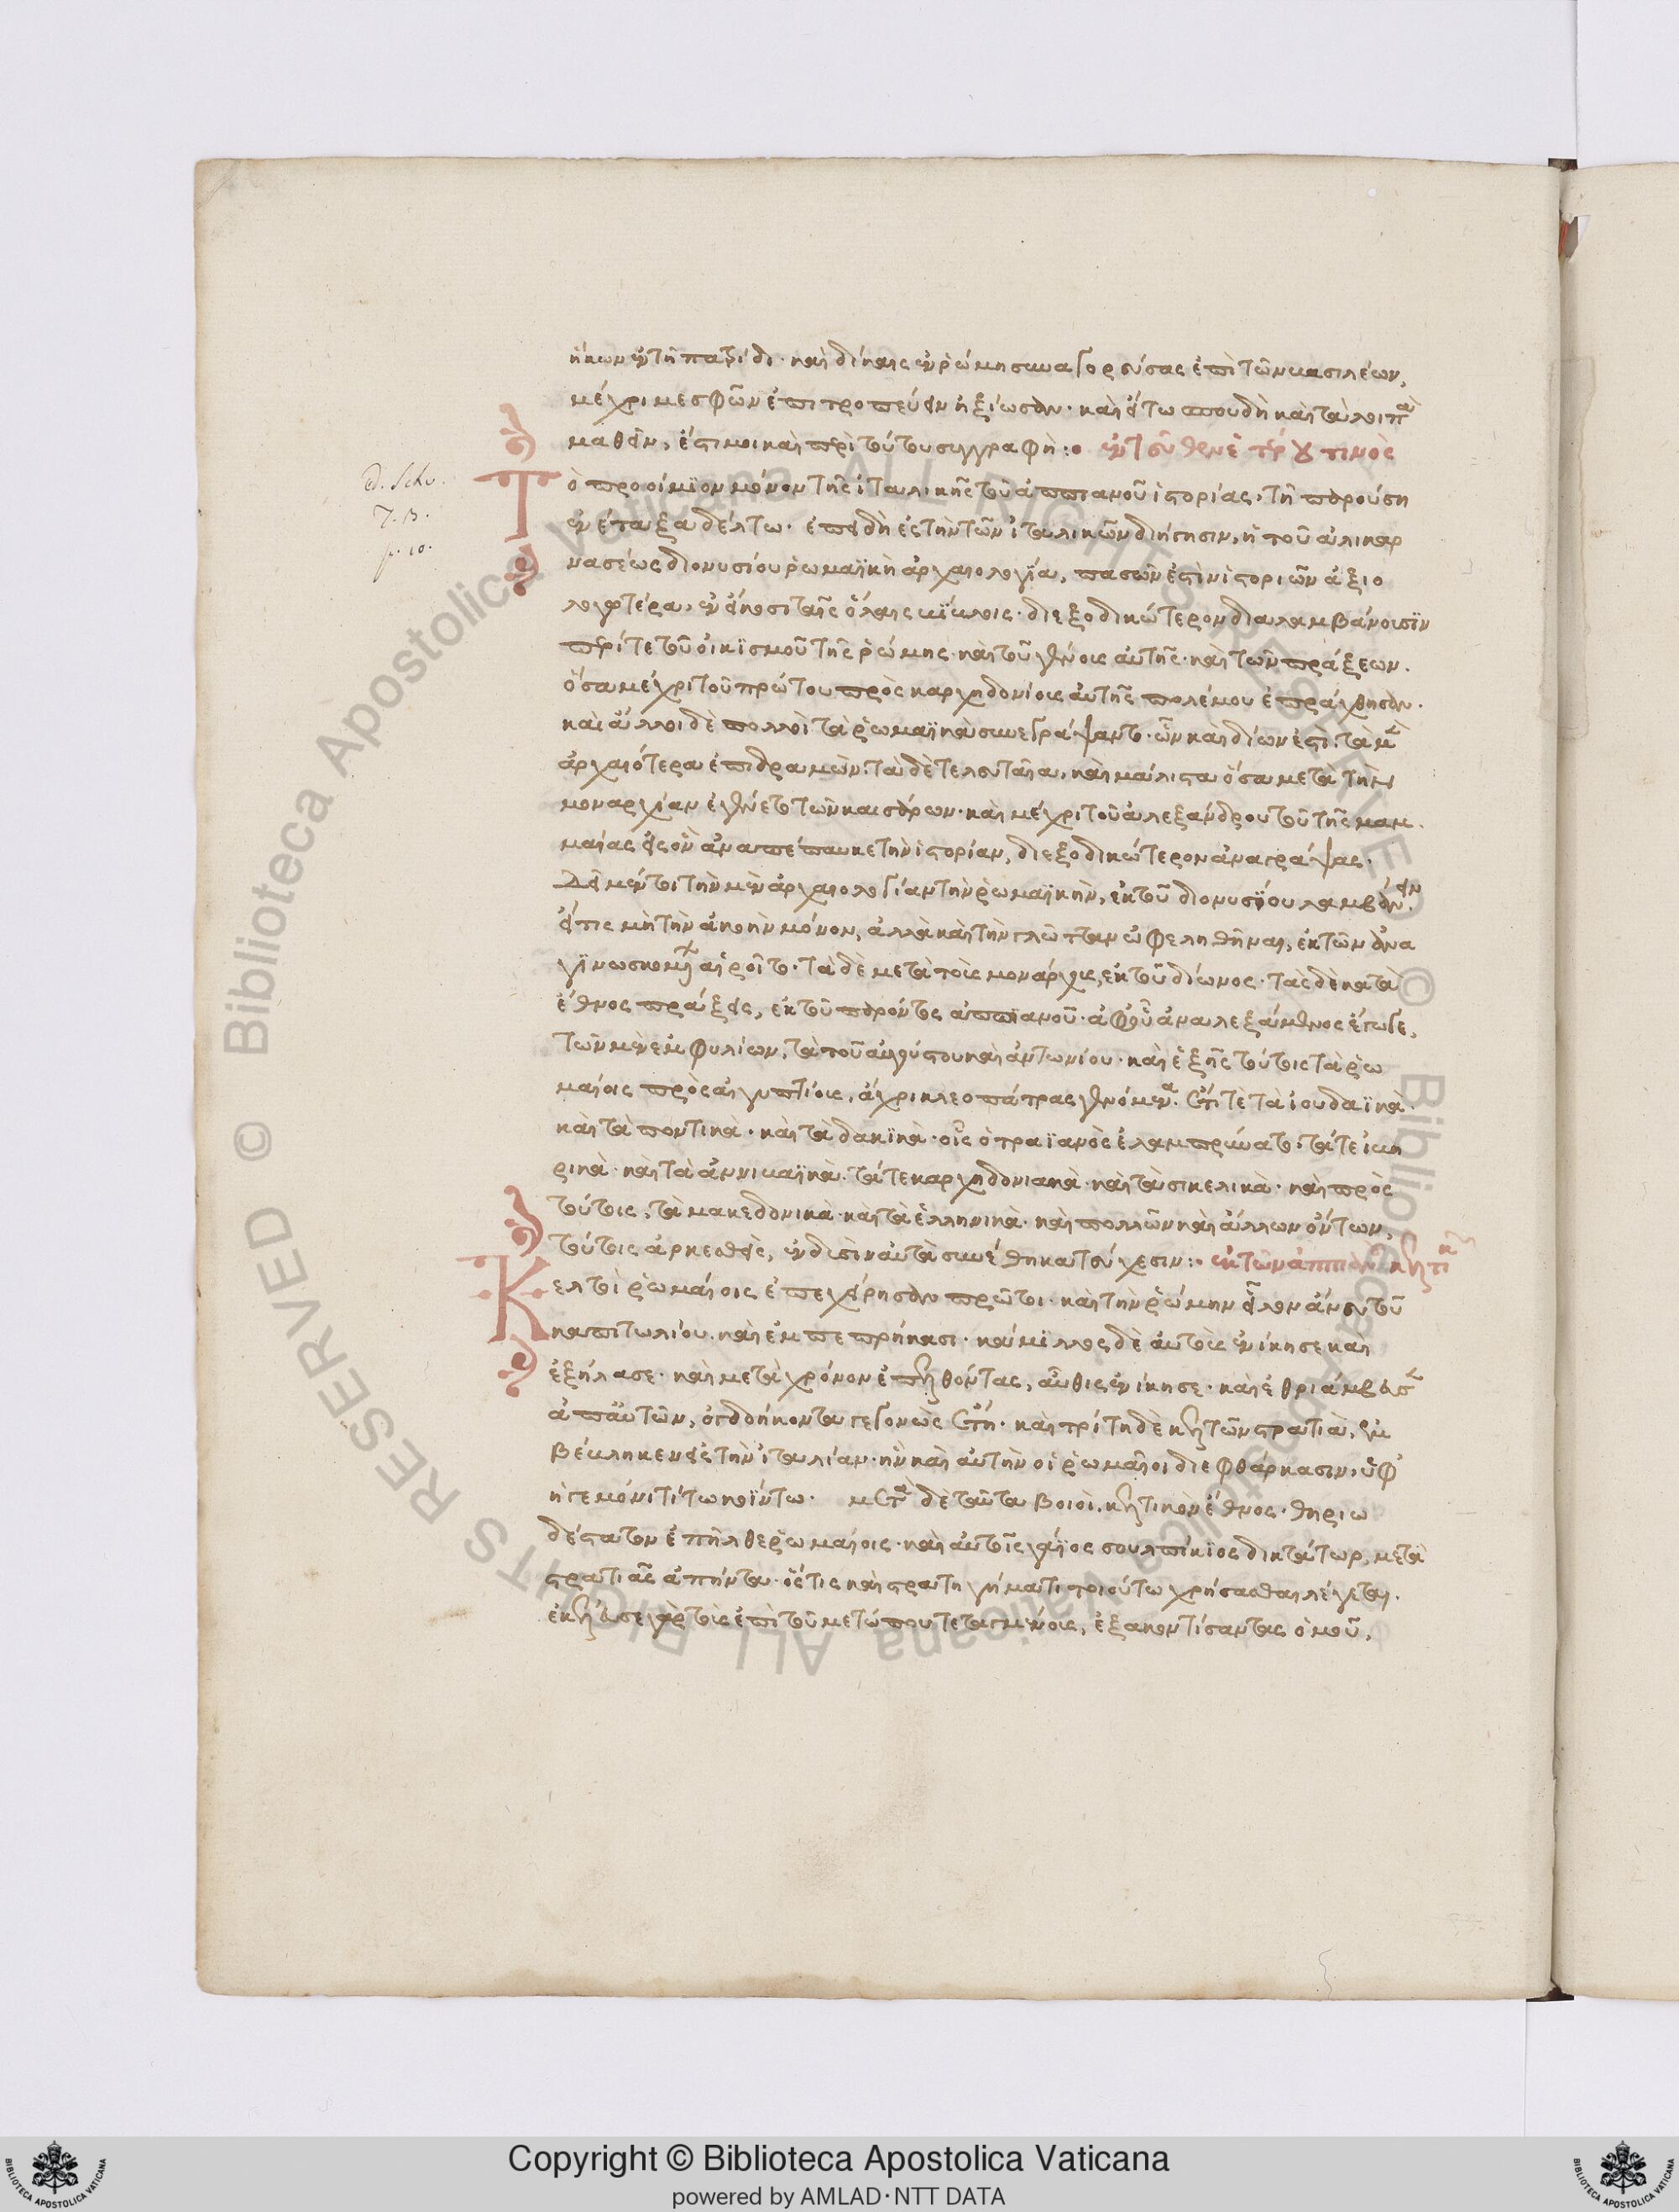 ἥκων ἐν τῇ πατρίδι· καὶ δίκαις ἐν ῥώμη συναγορεύσας ἐπὶ τῶν βασιλέων,
μέχρι με σφῶν ἐπιτροπεύειν ἠξίωσαν· καὶ εἴ τω σπουδὴ καὶ τὰ λοιπὰ
μαθεῖν, ἔστι μοι καὶ περὶ τούτου συγγραφή:ο ἐντεῦθεν ἑτέρου τινὸς
Τὸ προοίμϊον μόνον τῆς ἰταλικῆς τοῦ ἀππιανοῦ ἱστορίας, τῆ παρούση
ἐνέταξα δέλτω· ἐπειδὴ ἐς τὴν τῶν ἰταλικῶν διήγησιν, ἡ τοῦ ἁλικαρ
νασέως διονυσίου ῥωμαϊκὴ ἀρχαιολογία, πασῶν ἐστὶν ἱστοριῶν ἀξιο
λογωτέρα, ἐν εἴκοσι ταῖς ὅλαις βίβλοις· διεξοδικώτερον διαλαμβάνουσϊν
περί τε τοῦ οἰκϊσμοῦ τῆς ῥώμης· καὶ τοῦ γένους αὐτῆς· καὶ τῶν πράξεων.
ὅσα μέχρι τοῦ πρώτου πρὸς καρχηδονίους αὐτῆς πολέμου ἐπράχθησαν.
καὶ ἄλλοι δὲ πολλοὶ τὰ ῥωμαϊκὰ συνεγράψαντο· ὧν καὶ δίων ἐστὶ, τὰ μὲν
ἀρχαιότερα ἐπιδραμών· τὰ δὲ τελευταῖα, καὶ μάλιστα ὅσα μετὰ τὴν
μοναρχίαν ἐγένετο τῶν καισάρων· καὶ μέχρι τοῦ ἀλεξάνδρου τοῦ τῆς μαμ
μαίας εἰς ὃν ἀναπέπαυκε τὴν ἱστορίαν, διεξοδικώτερον ἀναγράψας·
Δεῖ μέντοι τὴν μὲν ἀρχαιολογίαν τὴν ῥωμαϊκὴν, ἐκ τοῦ διονυσίου λαμβάνειν.
εἴ τις μὴ τὴν ἀκοὴν μόνον, ἀλλὰ καὶ τὴν γλῶτταν ὠφεληθῆναι, ἐκ τῶν ἀνα
γϊνωσκομένων αἱροῖτο· τὰ δὲ μετὰ τοὺς μονάρχους, ἐκ τοῦ δίωνος· τὰς δὲ κατὰ
ἔθνος πράξεις, ἐκ τοῦ παρόντος ἀππϊανοῦ· ἀφ' οὗ ἀναλεξάμενος ἔγωγε,
τῶν μὲν ἐμφυλίων, τὰ τοῦ αὐγούστου καὶ ἀντωνίου· καὶ ἑξῆς τούτοις τὰ ῥω
μαίοις πρὸς αἰγυπτίους, ἄχρι κλεοπάτρας γενόμενα. ἔτι τὲ τὰ ἰουδαϊκά·
καὶ τὰ ποντικὰ· καὶ τὰ δακϊκὰ· οἷς ὁ τραϊανὸς ἐλαμπρύνατο· τά τε ἰβη
ρικὰ· καὶ τὰ ἀννιβαϊκὰ· τά τε καρχηδονιακὰ· καὶ τὰ σικελικὰ· καὶ πρὸς
τούτοις, τὰ μακεδονικὰ· καὶ τὰ ἑλληνικὰ· καὶ πολλῶν καὶ ἄλλων ὄντων,
τούτοις ἀρκεσθεὶς, ἐν δυσὶν αὐτὰ συνέθηκα τεύχεσιν:· ἐκ τῶν ἀππιανοῦ κελτικ
Κελτοὶ ῥωμαίοις ἐπεχείρησαν πρῶτοι· καὶ τὴν ῥώμην εἷλον ἄνευ τοῦ
καπιτωλίου· καὶ ἐμπεπρήκασι· κάμϊλλος δὲ αὐτοὺς ἐνίκησε καὶ
ἐξήλασε· καὶ μετὰ χρόνον ἐπελθόντας, αὖθις ἐνίκησε· καὶ ἐθριάμβευσεν
ἀπ' αὐτῶν, ὀγδοήκοντα γεγονὼς ἔτη· καὶ τρίτη δὲ κελτῶν στρατιὰ, ἐμ
βέβληκεν εἰς τὴν ἰταλίαν· ἣν καὶ αὐτὴν οἱ ῥωμαῖοι διεφθάρκασιν, ὑφ'
ἡγεμόνι τίτω κοίντω· μετὰ δὲ ταῦτα βοιοὶ, κελτικὸν ἔθνος· θηριω
δέστατον ἐπῆλθε ῥωμαίοις· καὶ αὐτοῖς γάϊος σουλπίκϊος δικτάτωρ, μετὰ
στρατιᾶς ἀπήντα· ὅστις καὶ στρατηγήματι τοιούτω χρήσασθαι λέγεται.
ἐκέλευσε γὰρ τοὺς ἐπὶ τοῦ μετώπου τεταγμένους, ἐξακοντίσαντας ὁμοῦ,
ed. Schw.
T. B.
p. 10.
Copyright © Biblioteca Apostolica Vaticana
powered by AMLAD·NTT DATA
© Biblioteca Apostolica Vaticana ALL RIGHTS RESERVED
© Biblioteca Apostolica Vaticana ALL RIGHTS RESERVED
BIBLIOTECA APOSTOLICA VATICANA
BIBLIOTECA APOSTOLICA VATICANA